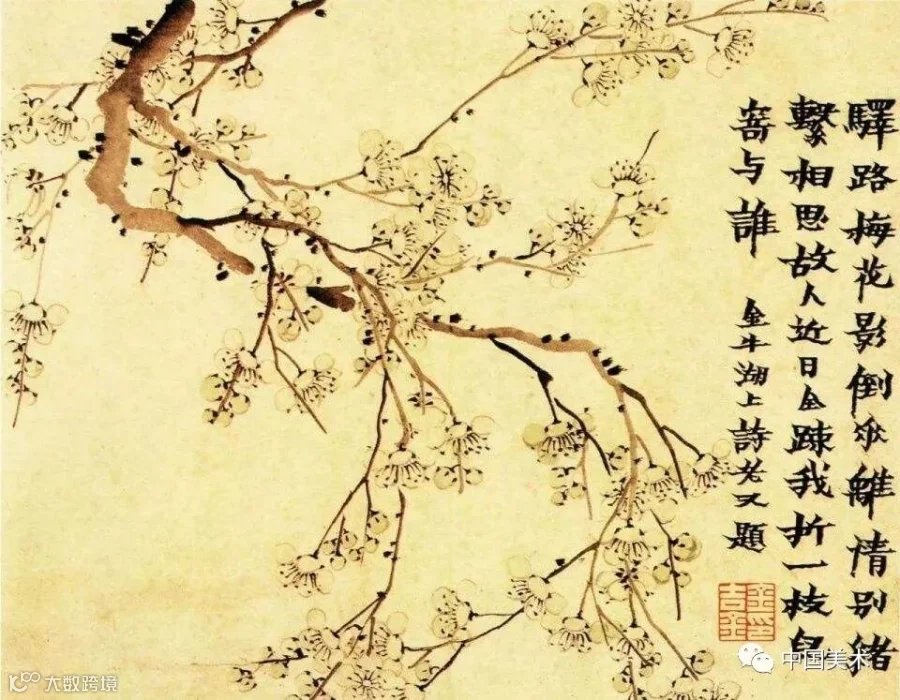 驛路梅花影倒垂離情别緒
繫相思故人近日全踈我折一枝兒
寄与誰
金牛湖上詩老又題
金印吉金
中国美术
大数跨境